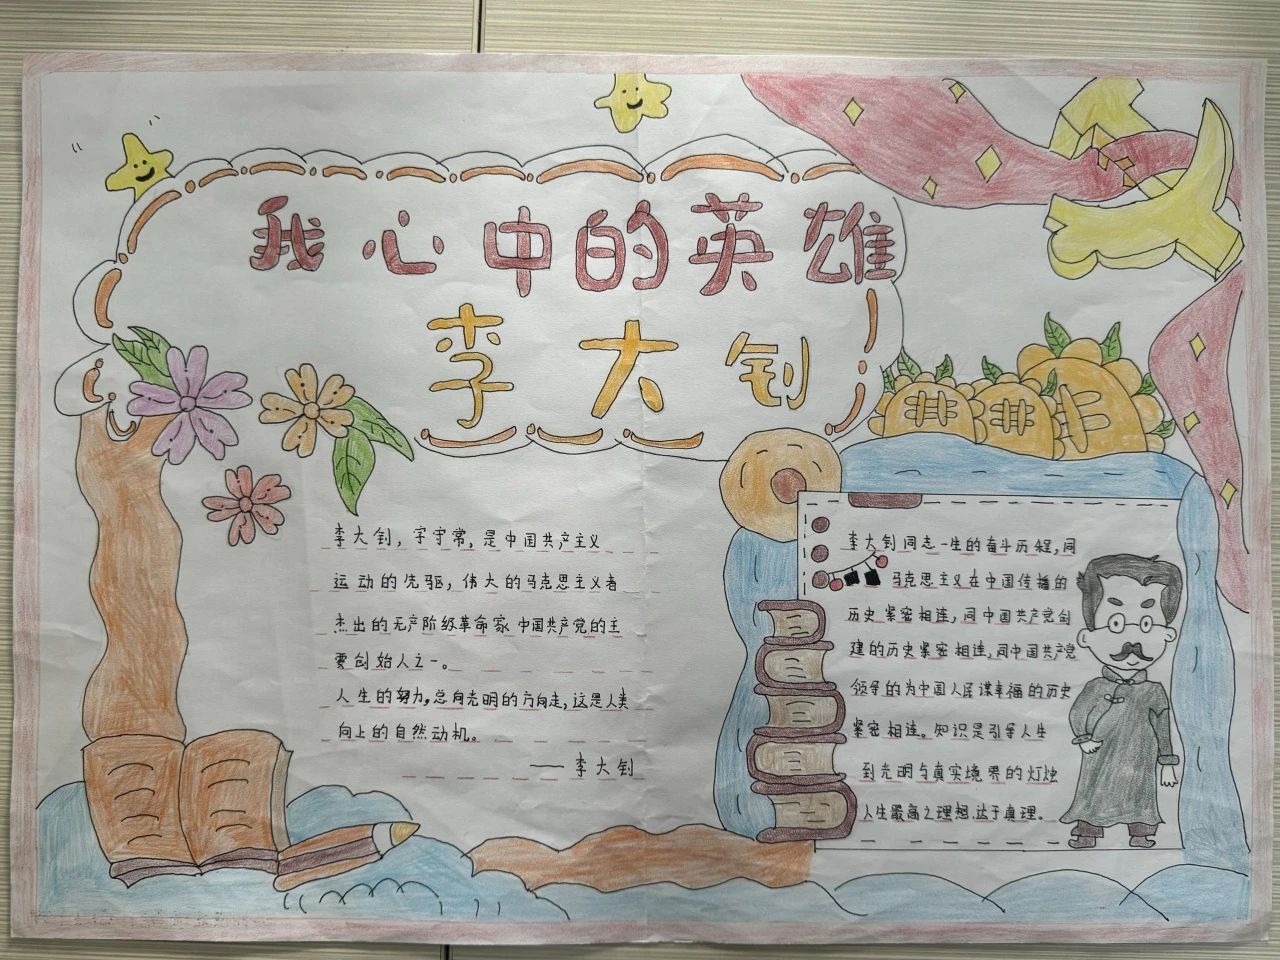 我心中的英雄
李大钊
李大钊，字守常，是中国共产主义
运动的先驱，伟大的马克思主义者
杰出的无产阶级革命家 中国共产党的主
要创始人之一。
人生的努力，总向光明的方向走，这是人类
向上的自然动机。
——李大钊
李大钊同志一生的奋斗历程，同
马克思主义在中国传播的
历史紧密相连，同中国共产党创
建的历史紧密相连，同中国共产党
领导的为中国人民谋幸福的历史
紧密相连。知识是引导人生
到光明与真实境界的灯烛
人生最高之理想，达于真理。